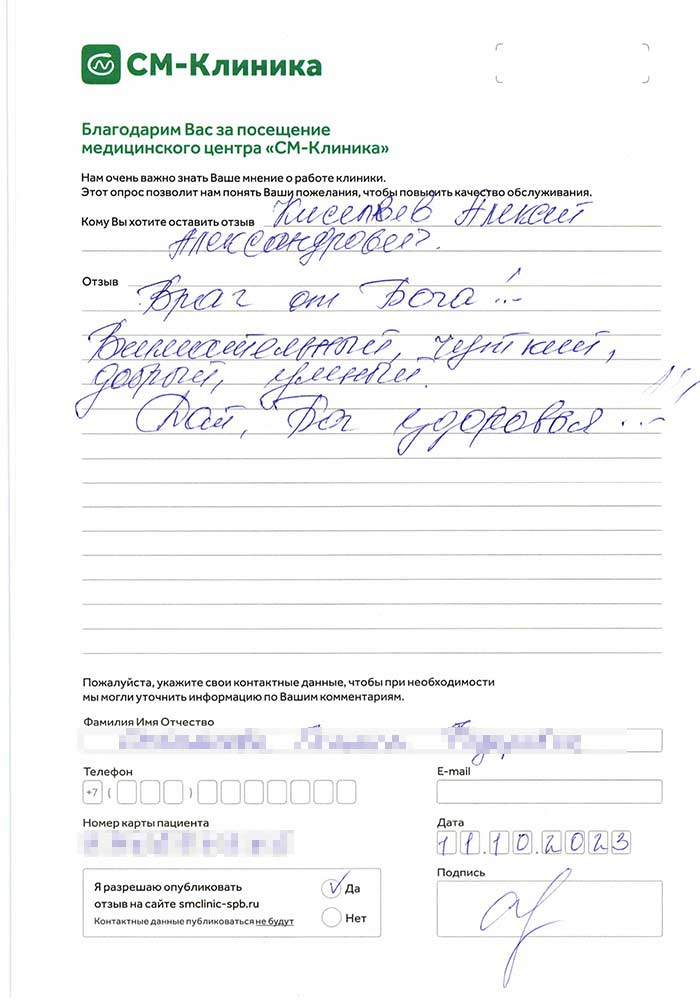 СМ-Клиника
Благодарим Вас за посещение
медицинского центра «СМ-Клиника»
Нам очень важно знать Ваше мнение о работе клиники.
Этот опрос позволит нам понять Ваши пожелания, чтобы повысить качество обслуживания.
Кому Вы хотите оставить отзыв Алексей
Александрович.
Отзыв
Врач от Бога!..
Внимательный, чуткий,
добрый, умный.
Дай, Бог здоровья...
Пожалуйста, укажите свои контактные данные, чтобы при необходимости
мы могли уточнить информацию по Вашим комментариям.
Фамилия Имя Отчество
Телефон
E-mail
+7 ( )
Номер карты пациента
Дата
11.10.2023
Подпись
Я разрешаю опубликовать
отзыв на сайте smclinic-spb.ru
Контактные данные публиковаться не будут
Да
Нет